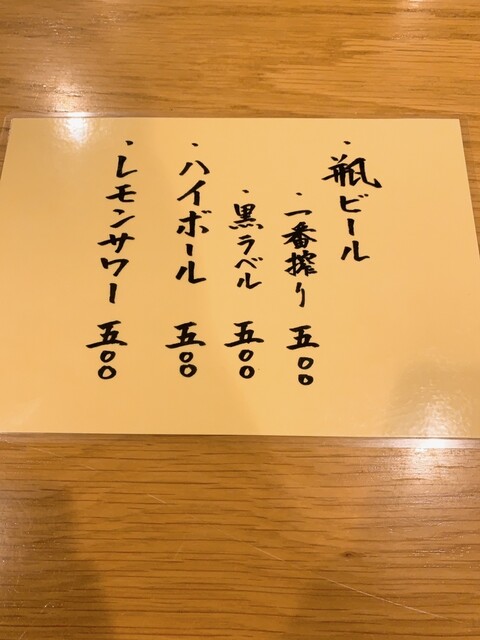 ・瓶ビール
・一番搾り 五〇〇
・黒ラベル 五〇〇
・ハイボール 五〇〇
・レモンサワー 五〇〇